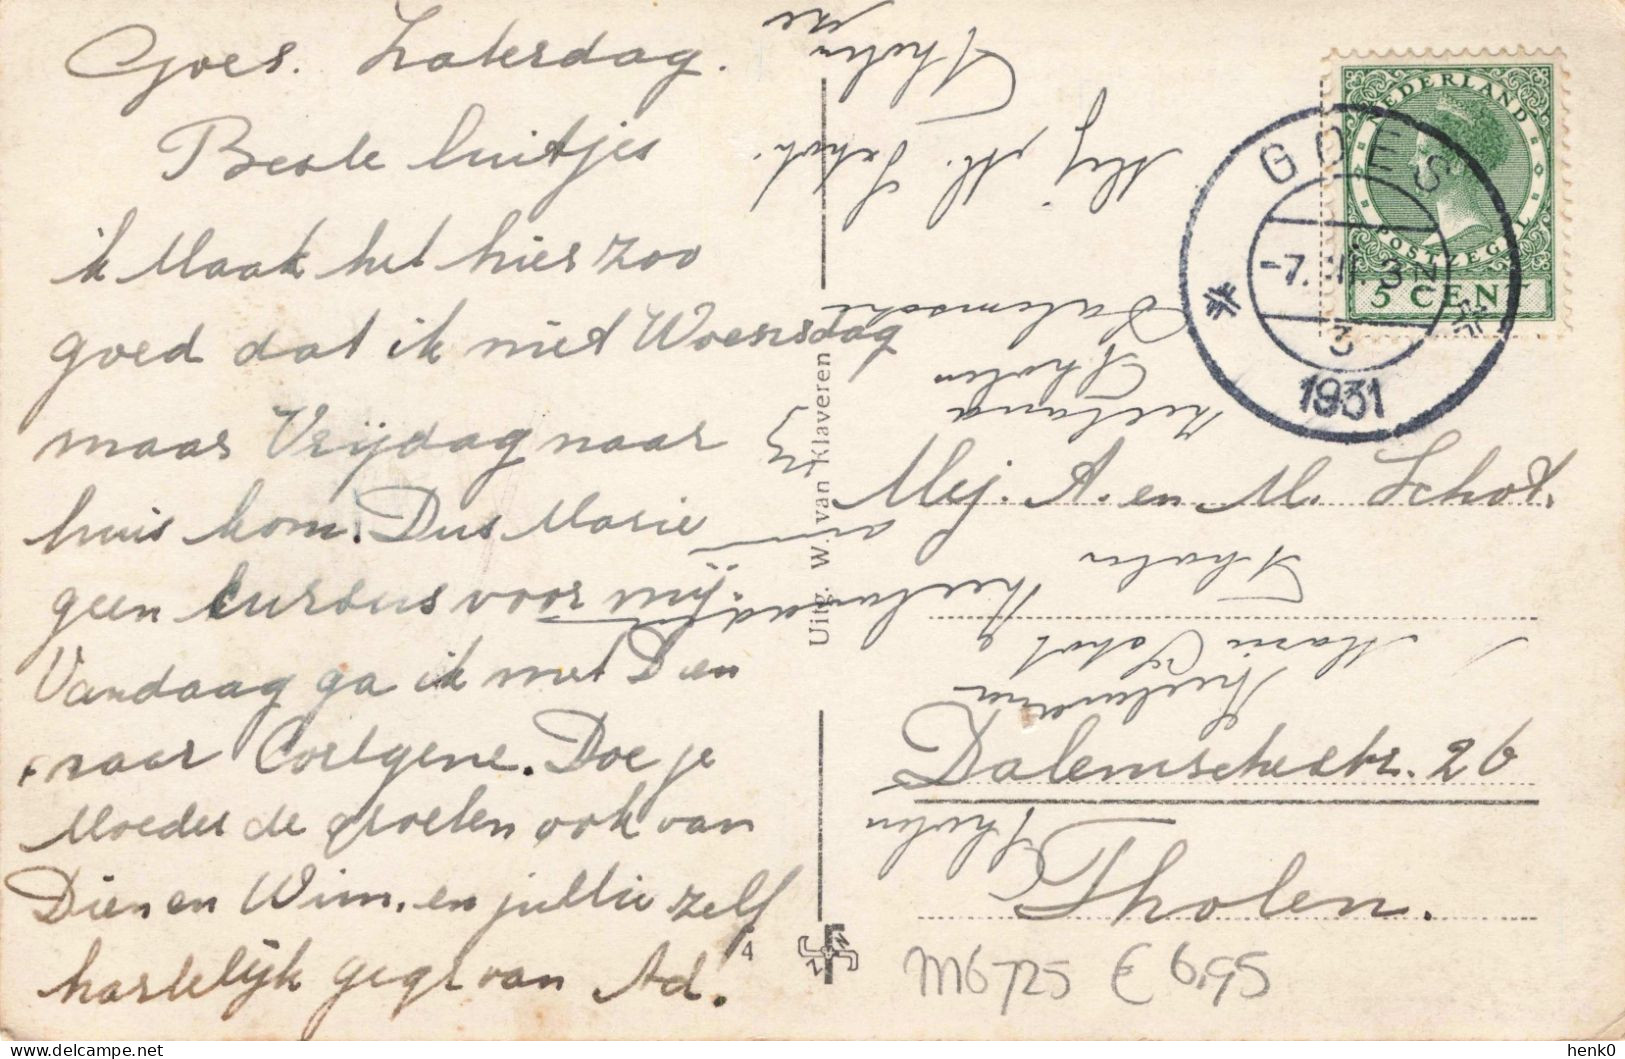 Goes. Zaterdag.
Beste luitjes
ik Maak het hier zoo
goed dat ik niet Woensdag
maar Vrijdag naar
huis kom. Dus Marie
geen kursus voor mij.
Vandaag ga ik met Dien
naar Cortgene. Doe je
Moeder de groeten ook van
Dien en Wim. en jullie zelf
hartelijk gegr van Ad.
4
Uitg. W. van Klaveren
NEDERLAND
POSTZEGEL
5 CENT
GOES
3
1931
Mej. A. en M. Schot.
Dalemschestr. 26
Tholen.
Mej M. Schot.
Tholen
Zeeland
Tholen
Tholen
Marie Schot
Tholen
M6725 € 6,95
henk0